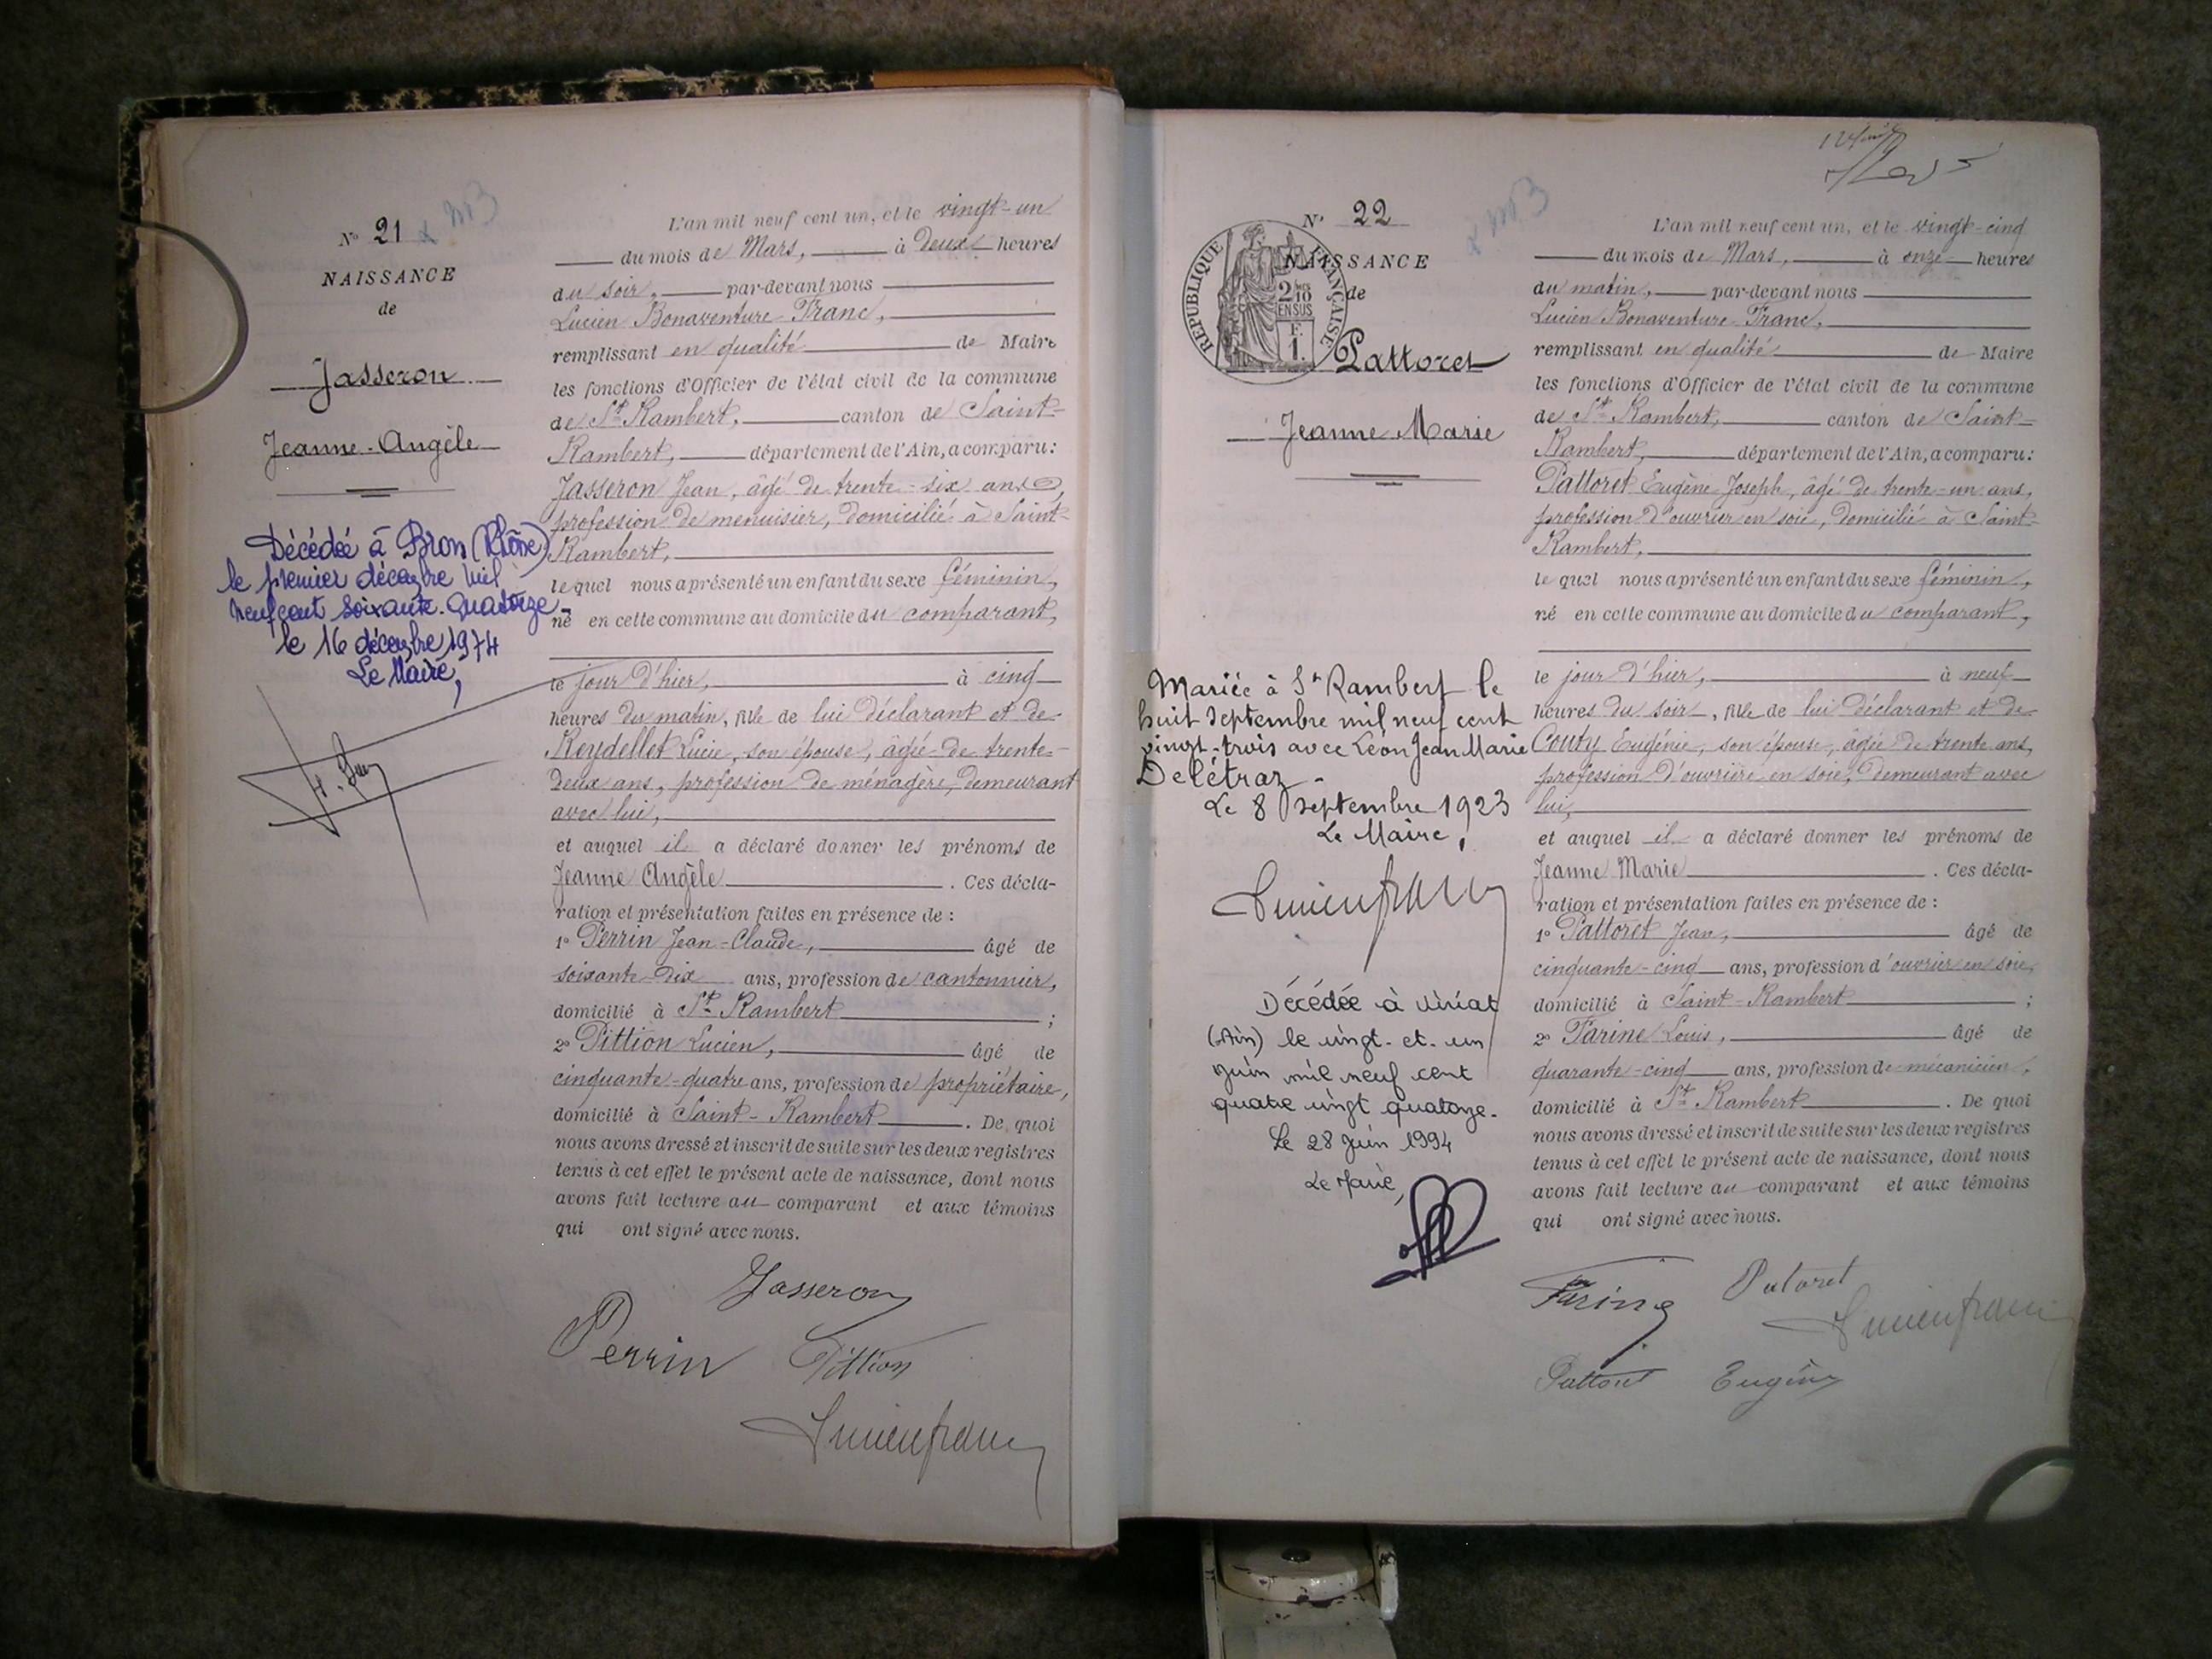 N° 21
NAISSANCE
de
Jasseron
Jeanne-Angèle
Décédée à Bron (Rhône)
le premier décembre mil
neuf cent soixante-quatorze
le 16 décembre 1974
Le Maire,
L'an mil neuf cent un, et le vingt-un
du mois de Mars, à deux heures
du soir, par-devant nous
Lucien Bonaventure Franc,
remplissant en qualité de Maire
les fonctions d'Officier de l'état civil de la commune
de St Rambert, canton de Saint-
Rambert, département de l'Ain, a comparu:
Jasseron Jean, âgé de trente-six ans,
profession de menuisier, domicilié à Saint-
Rambert,
le quel nous a présenté un enfant du sexe féminin,
né en cette commune au domicile du comparant,
le jour d'hier, à cinq
heures du matin, fille de lui déclarant et de
Reydellet Lucie, son épouse, âgée de trente-
deux ans, profession de ménagère, demeurant
avec lui,
et auquel il a déclaré donner les prénoms de
Jeanne Angèle. Ces décla-
ration et présentation faites en présence de :
1° Perrin Jean-Claude, âgé de
soixante-dix ans, profession de cantonnier,
domicilié à St Rambert ;
2° Pittion Lucien, âgé de
cinquante-quatre ans, profession de propriétaire,
domicilié à Saint-Rambert. De quoi
nous avons dressé et inscrit de suite sur les deux registres
tenus à cet effet le présent acte de naissance, dont nous
avons fait lecture au comparant et aux témoins
qui ont signé avec nous.
Jasseron
Perrin Pittion
Lucien franc
N° 22
NAISSANCE
de
RÉPUBLIQUE FRANÇAISE
2/10
EN SUS
F.
1.
Pattoret
Jeanne Marie
Mariée à St Rambert le
huit septembre mil neuf cent
vingt-trois avec Léon Jean Marie
Delétraz.
Le 8 septembre 1923
Le Maire,
Lucien franc
Décédée à Viriat
(Ain) le vingt-et-un
juin mil neuf cent
quatre vingt quatorze.
Le 28 juin 1994
Le Maire,
L'an mil neuf cent un, et le vingt-cinq
du mois de Mars, à onze heures
du matin, par-devant nous
Lucien Bonaventure Franc,
remplissant en qualité de Maire
les fonctions d'Officier de l'état civil de la commune
de St Rambert, canton de Saint-
Rambert, département de l'Ain, a comparu:
Pattoret Eugène Joseph, âgé de trente-un ans,
profession d'ouvrier en soie, domicilié à Saint-
Rambert,
le quel nous a présenté un enfant du sexe féminin,
né en cette commune au domicile du comparant,
le jour d'hier, à neuf
heures du soir, fille de lui déclarant et de
Couty Eugénie, son épouse, âgée de trente ans,
profession d'ouvrière en soie, demeurant avec
lui,
et auquel il a déclaré donner les prénoms de
Jeanne Marie. Ces décla-
ration et présentation faites en présence de :
1° Pattoret Jean, âgé de
cinquante-cinq ans, profession d'ouvrier en soie,
domicilié à Saint-Rambert ;
2° Farine Louis, âgé de
quarante-cinq ans, profession de mécanicien,
domicilié à St Rambert. De quoi
nous avons dressé et inscrit de suite sur les deux registres
tenus à cet effet le présent acte de naissance, dont nous
avons fait lecture au comparant et aux témoins
qui ont signé avec nous.
Farine Patoret
Lucien franc
Pattoret Eugène